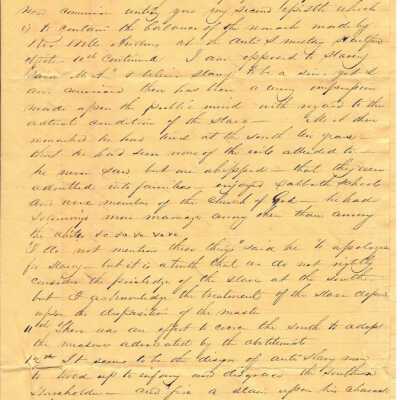 now commence writing you my second epistle which
is to contain the balance of the remarks made by
Rev. at the Anti S meeting Hartford
10th Continued I am opposed to Slavery
I believe slavery to be a sin, yet I
am convinced there has been a wrong impression
made upon the public mind with regard to the
actual condition of the slave – He then
remarked he had lived at the South ten years
that he had seen none of the evils attended to –
he never saw but one whipped – that they were
admitted into families, enjoyed Sabbath schools
and were members of the Church of God – he had
Solemnized more marriages among them than among
the whites so so so so
"I do not mention these things" said he "to apologise
for Slavery – but it is a truth that we do not rightly
consider the privileges of the slave at the South –
but I acknowledge the treatment of the slave depends
upon the disposition of the master
11th There was an effort to coerce the South to adopt
the measures advocated by the abolitionists
12th It seems to be the design of Anti Slavery men
to hold up to infamy and disgrace the Southern
Slaveholder – and fix a stain upon his character